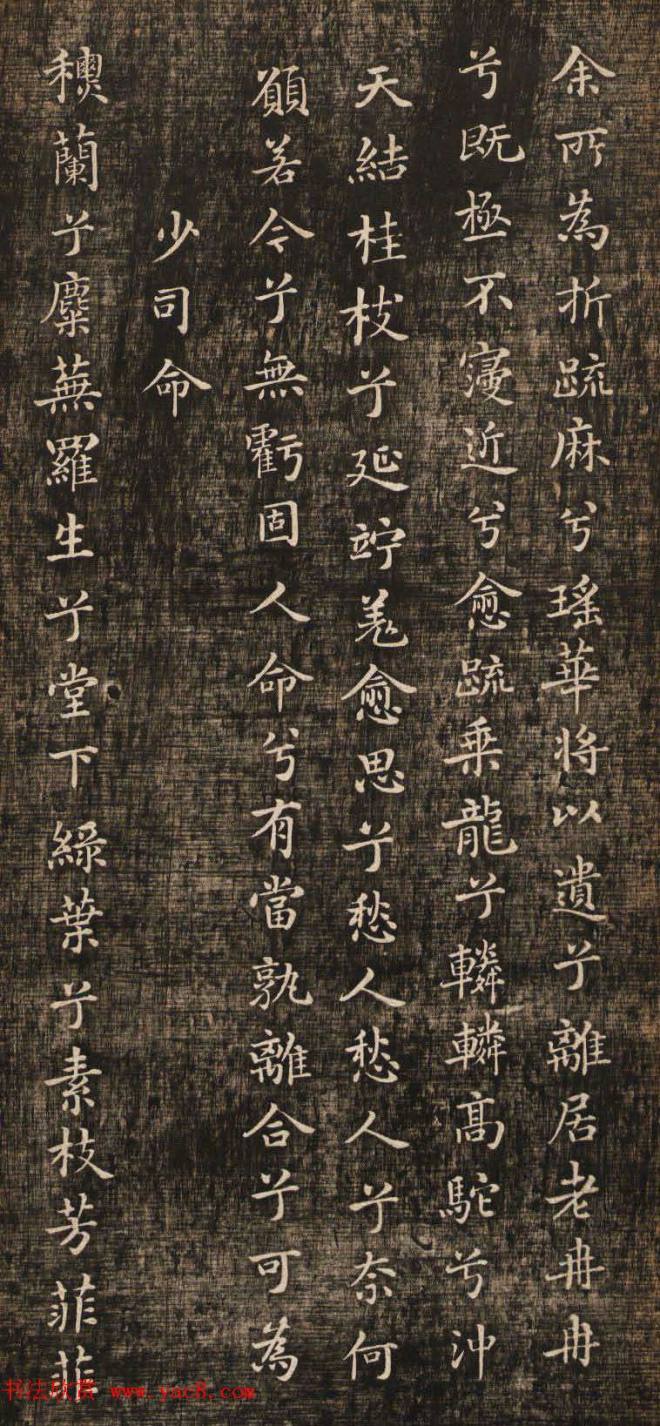 余所為折疏麻兮瑤華將以遺兮離居老冉冉
兮既極不寖近兮愈疏乗龍兮轔轔髙駝兮沖
天結桂枝兮延竚羌愈思兮愁人愁人兮奈何
願若今兮無虧固人命兮有當孰離合兮可為
少司命
穟蘭兮麋蕪羅生兮堂下綠葉兮素枝芳菲菲
书法欣赏 www.yac8.com